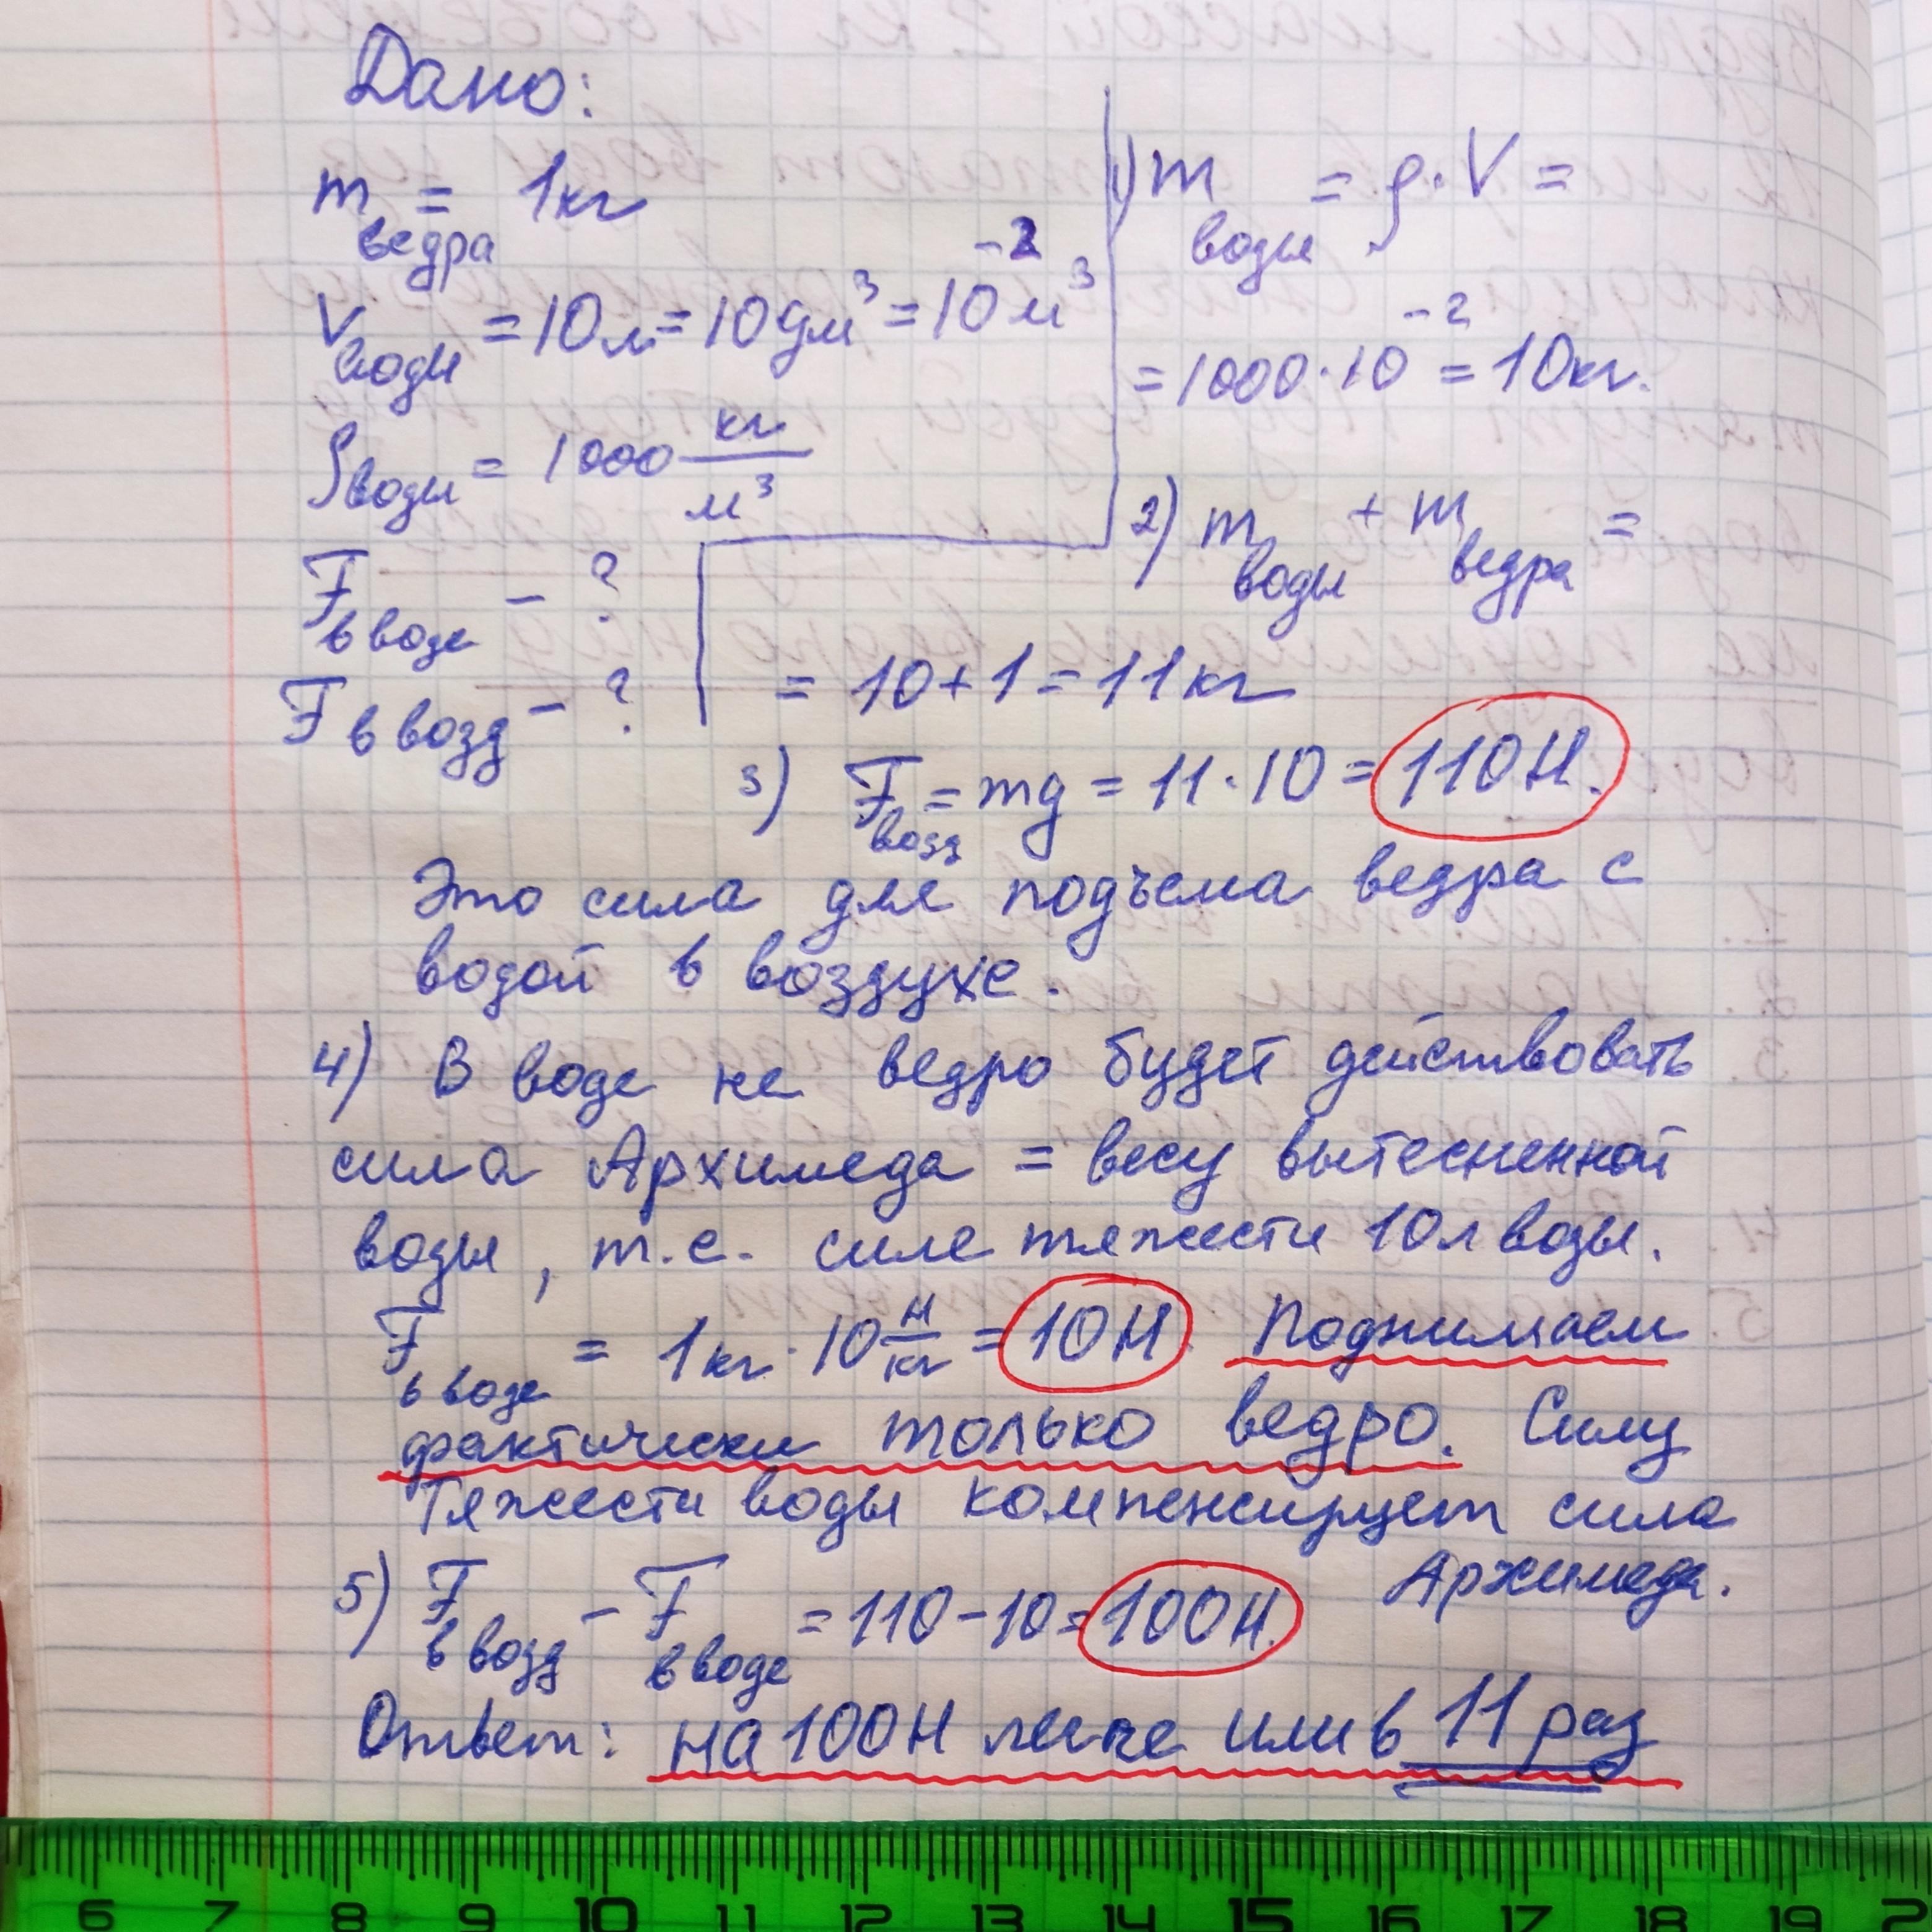 Дано:
m ведра = 1кг
V воды = 10л = 10дм³ = 10⁻² м³
ρ воды = 1000 кг/м³
F в воде - ?
F в возд - ?
1) m воды = ρ·V =
= 1000·10⁻² = 10кг.
2) m воды + m ведра =
= 10+1 = 11кг
3) F возд = mg = 11·10 = 110Н.
Это сила для подъема ведра с
водой в воздухе.
4) В воде на ведро будет действовать
сила Архимеда = весу вытесненной
воды, т.е. силе тяжести 10л воды.
F в воде = 1кг·10 Н/кг = 10Н. Поднимаем
фактически только ведро. Силу
Тяжести воды компенсирует сила
Архимеда.
5) F в возд - F в воде = 110-10 = 100Н.
Ответ: на 100Н легче или в 11 раз
6 7 8 9 10 11 12 13 14 15 16 17 18 19 2